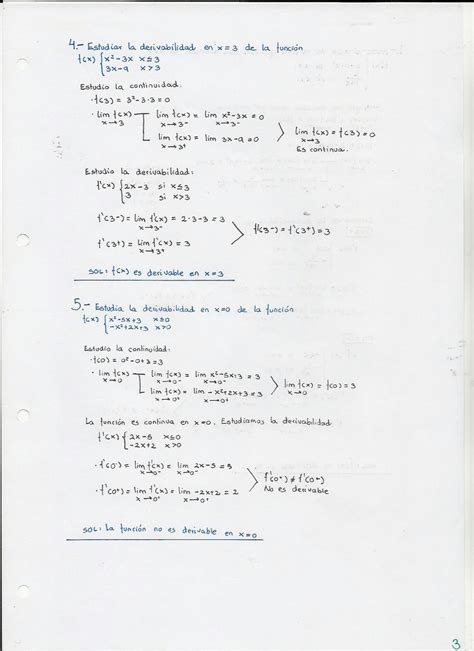 4.- Estudiar la derivabilidad en x=3 de la función
f(x) { x²-3x x≤3
3x-9 x>3
Estudio la continuidad:
· f(3) = 3²-3·3 = 0
· lim f(x) lim f(x) = lim x²-3x = 0
x→3 x→3⁻ x→3⁻
lim f(x) = lim 3x-9 = 0
x→3⁺
lim f(x) = f(3) = 0
x→3
Es continua.
Estudio la derivabilidad:
f'(x) { 2x-3 si x≤3
3 si x>3
f'(3-) = lim f'(x) = 2·3-3 = 3
x→3⁻
f'(3+) = lim f'(x) = 3
x→3⁺
f'(3-) = f'(3+) = 3
SOL: f(x) es derivable en x=3
5.- Estudia la derivabilidad en x=0 de la función
f(x) { x²-5x+3 x≤0
-x²+2x+3 x>0
Estudio la continuidad:
· f(0) = 0²-0+3 = 3
· lim f(x) lim f(x) = lim x²-5x+3 = 3
x→0 x→0⁻ x→0⁻
lim f(x) = lim -x²+2x+3 = 3
x→0⁺ x→0⁺
lim f(x) = f(0) = 3
x→0
La función es continua en x=0. Estudiamos la derivabilidad
f'(x) { 2x-5 x≤0
-2x+2 x>0
· f'(0-) = lim f'(x) = lim 2x-5 = 5
x→0⁻ x→0⁻
· f'(0+) = lim f'(x) = lim -2x+2 = 2
x→0⁺ x→0⁺
f'(0+) ≠ f'(0-)
No es derivable
SOL: La función no es derivable en x=0
3